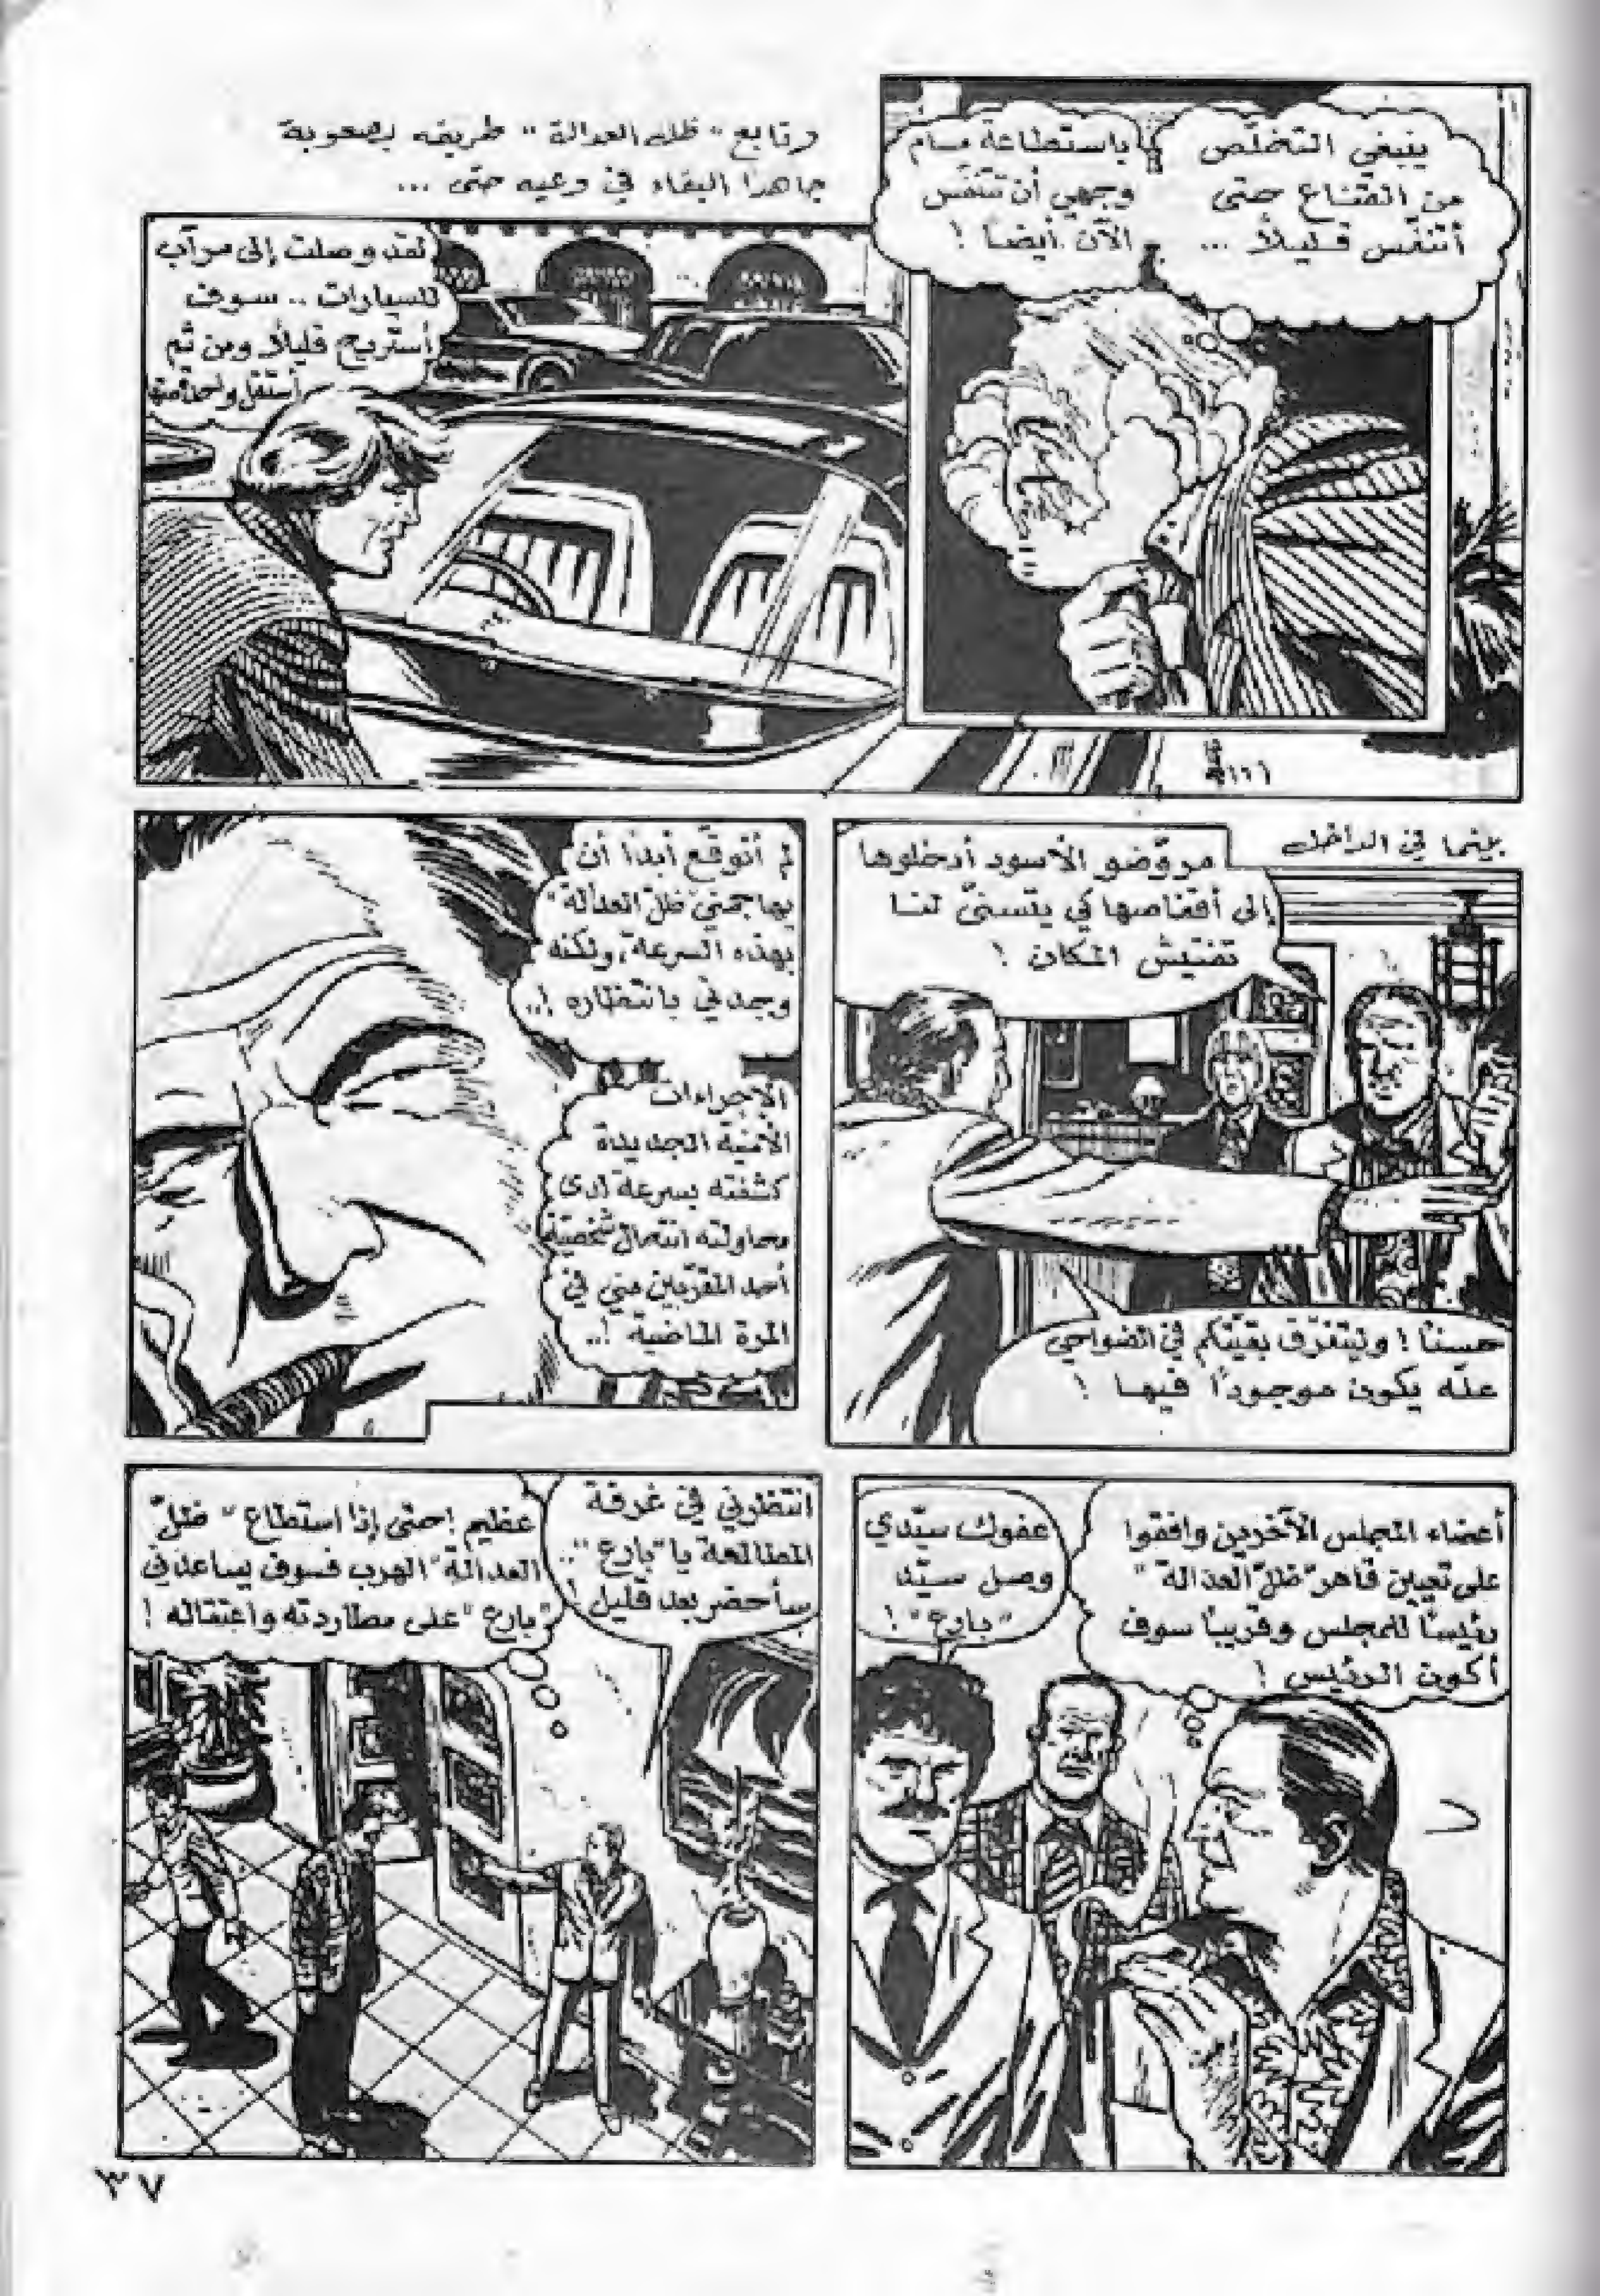 ينبغي التخلّص
من القناع حتى
أتنفّس قليلاً ...
باستطاعة مسام
وجهي أن تتنفّس
الآن أيضاً !
وتابع "ظل العدالة" طريقه بصعوبة
جاهداً البقاء في وعيه حتى ...
لقد وصلت إلى مرآب
للسيارات .. سوف
أستريح قليلاً ومن ثم
أستقل واحدة منها
بينما في الداخل
مروّضو الأسود أدخلوها
إلى أقفاصها كي يتسنىّ لنا
تفتيش المكان !
حسناً ! وليتفرّق بقيّتكم في الضواحي
علّه يكون موجوداً فيها !
لم أتوقّع أبداً أن
يهاجمني "ظلّ العدالة"
بهذه السرعة، ولكنه
وجدني بانتظاره !..
الإجراءات
الأمنية الجديدة
كشفته بسرعة لدى
محاولته انتحال شخصيّة
أحد المقرّبين مني في
المرة الماضية !..
أعضاء المجلس الآخرين وافقوا
على تعيين قاهر "ظلّ العدالة"
رئيساً للمجلس وقريباً سوف
أكون الرئيس !
عفوك سيّدي
وصل سيّد
"بارع" !
انتظرني في غرفة
المطالعة يا "بارع" ..
سأحضر بعد قليل !
عظيم ! حتى إذا استطاع "ظلّ
العدالة" الهرب فسوف يساعدني
"بارع" على مطاردته واعتقاله !
٣٧